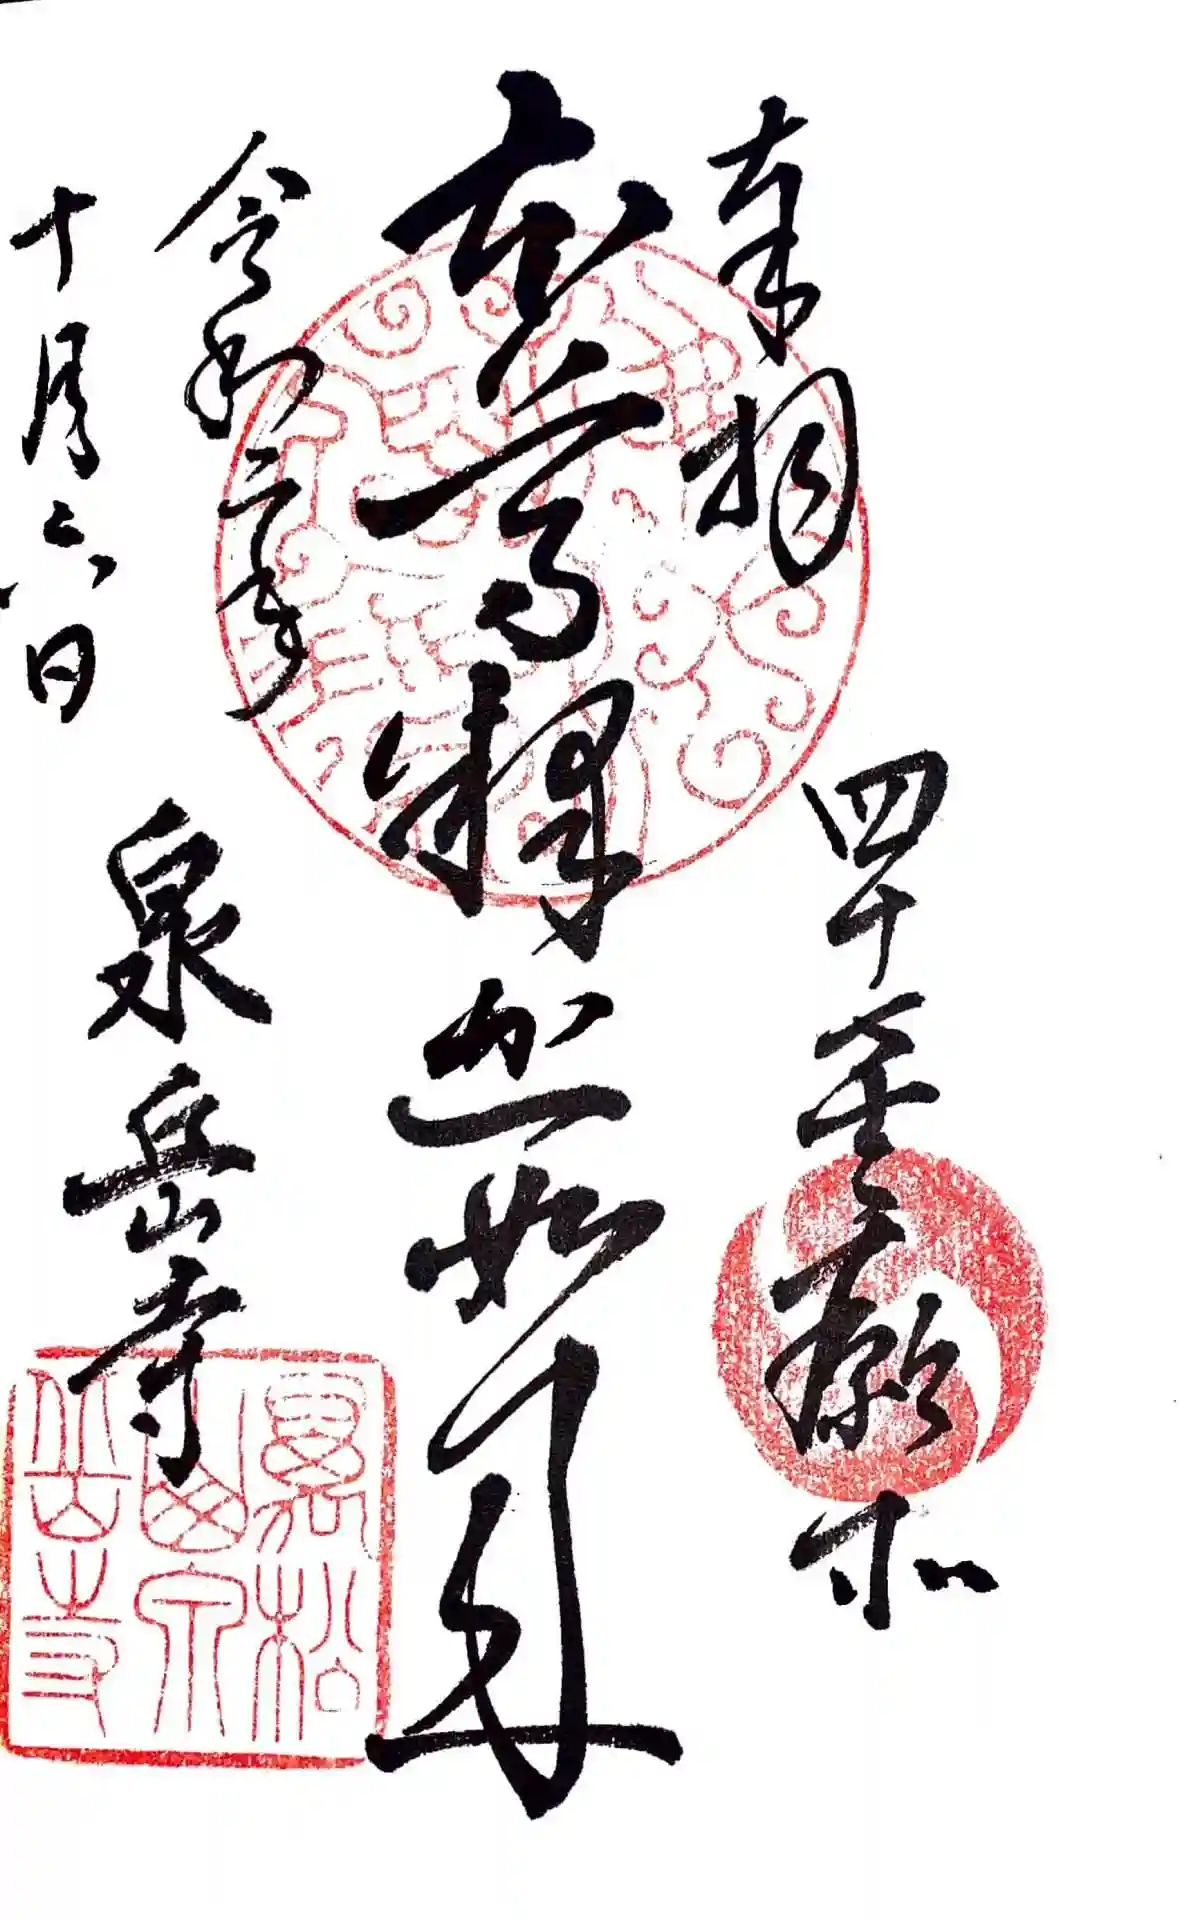 奉拝
四十
本尊釋迦如来
令和三年
十月六日
泉岳寺
萬松
山泉
岳寺